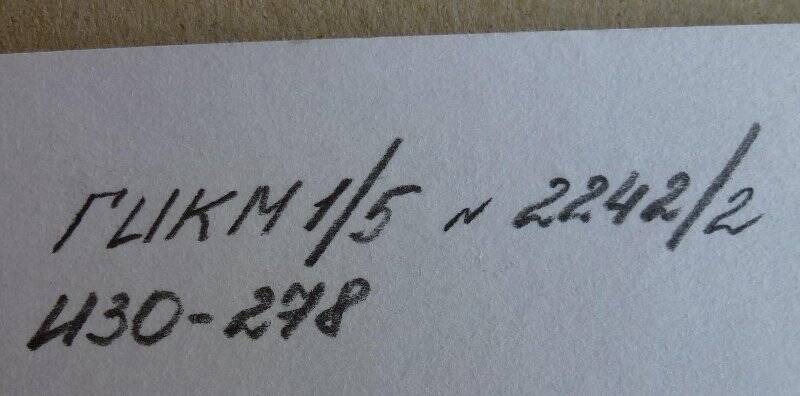 ГЦКМ 1/5 N 2242/2
ИЗО-278